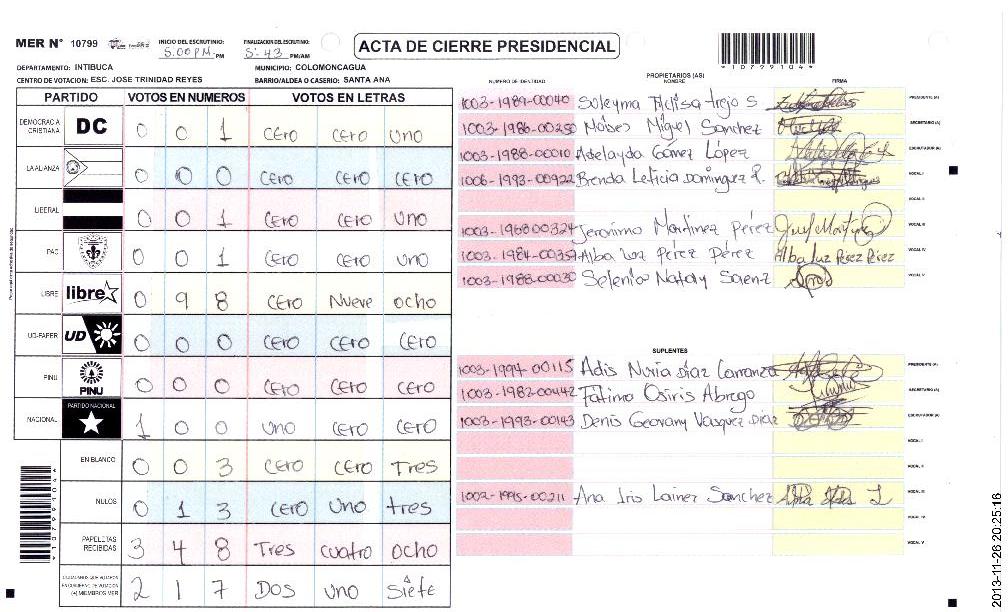 MER N° 10799
INICIO DEL ESCRUTINIO: 5:00 PM PM
FINALIZACION DEL ESCRUTINIO: 5:43 PM/AM
ACTA DE CIERRE PRESIDENCIAL
*10799104*
DEPARTAMENTO: INTIBUCA
MUNICIPIO: COLOMONCAGUA
CENTRO DE VOTACION: ESC. JOSE TRINIDAD REYES
BARRIO/ALDEA O CASERIO: SANTA ANA
PARTIDO VOTOS EN NUMEROS VOTOS EN LETRAS
DEMOCRACIA CRISTIANA DC 0 0 1 CERO CERO UNO
LA ALIANZA 0 0 0 CERO CERO CERO
LIBERAL 0 0 1 CERO CERO UNO
PAC 0 0 1 CERO CERO UNO
LIBRE libre 0 9 8 CERO Nueve ocho
UD-FAPER UD 0 0 0 CERO CERO CERO
PINU PINU 0 0 0 CERO CERO CERO
NACIONAL PARTIDO NACIONAL 1 0 0 UNO CERO CERO
EN BLANCO 0 0 3 CERO CERO Tres
NULOS 0 1 3 CERO UNO tres
PAPELETAS RECIBIDAS 3 4 8 Tres cuatro ocho
CIUDADANOS QUE VOTARON EN CUADERNO DE VOTACION (+) MIEMBROS MER 2 1 7 DOS UNO Siete
*10799104*
NUMERO DE IDENTIDAD PROPIETARIOS (AS) NOMBRE FIRMA
1003-1989-00040 Suleyma Trejo S PRESIDENTE (A)
1003-1986-00250 Moises Miguel Sanchez SECRETARIO (A)
1003-1988-00010 Adelayda Gómez López ESCRUTADOR (A)
1006-1993-00922 Brenda Leticia Dominguez R. VOCAL I
VOCAL II
1003-1968-00324 Jeronimo Martinez Pérez VOCAL III
1003-1984-00357 Alba Luz Pérez Pérez Alba Luz Perez Perez VOCAL IV
1003-1988-00030 Selenia Nataly Saenz VOCAL V
SUPLENTES
1003-1994-00115 Adis Nuria Diaz Carranza PRESIDENTE (A)
1003-1982-00442 Fatima Osiris Abrego SECRETARIO (A)
1003-1993-00143 Denis Geovany Vasquez Diaz ESCRUTADOR (A)
VOCAL I
VOCAL II
1002-1995-00211 Ana Iris Lainez Sanchez VOCAL III
VOCAL IV
VOCAL V
2013-11-26 20:25:16